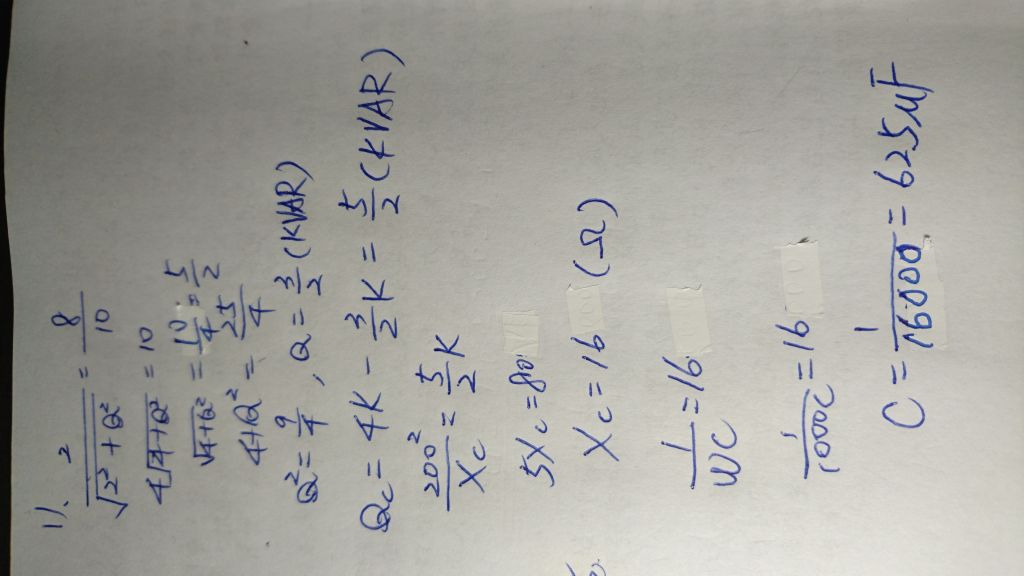 1). 2/√(2²+Q²) = 8/10
4√(4+Q²) = 10
√(4+Q²) = 10/4 = 5/2
4+Q² = 25/4
Q² = 9/4 , Q = 3/2 (KVAR)
Qc = 4K - 3/2 K = 5/2 (KVAR)
200²/Xc = 5/2 K
5Xc = 80
Xc = 16 (Ω)
1/WC = 16
1/1000C = 16
C = 1/16000 = 625 uF